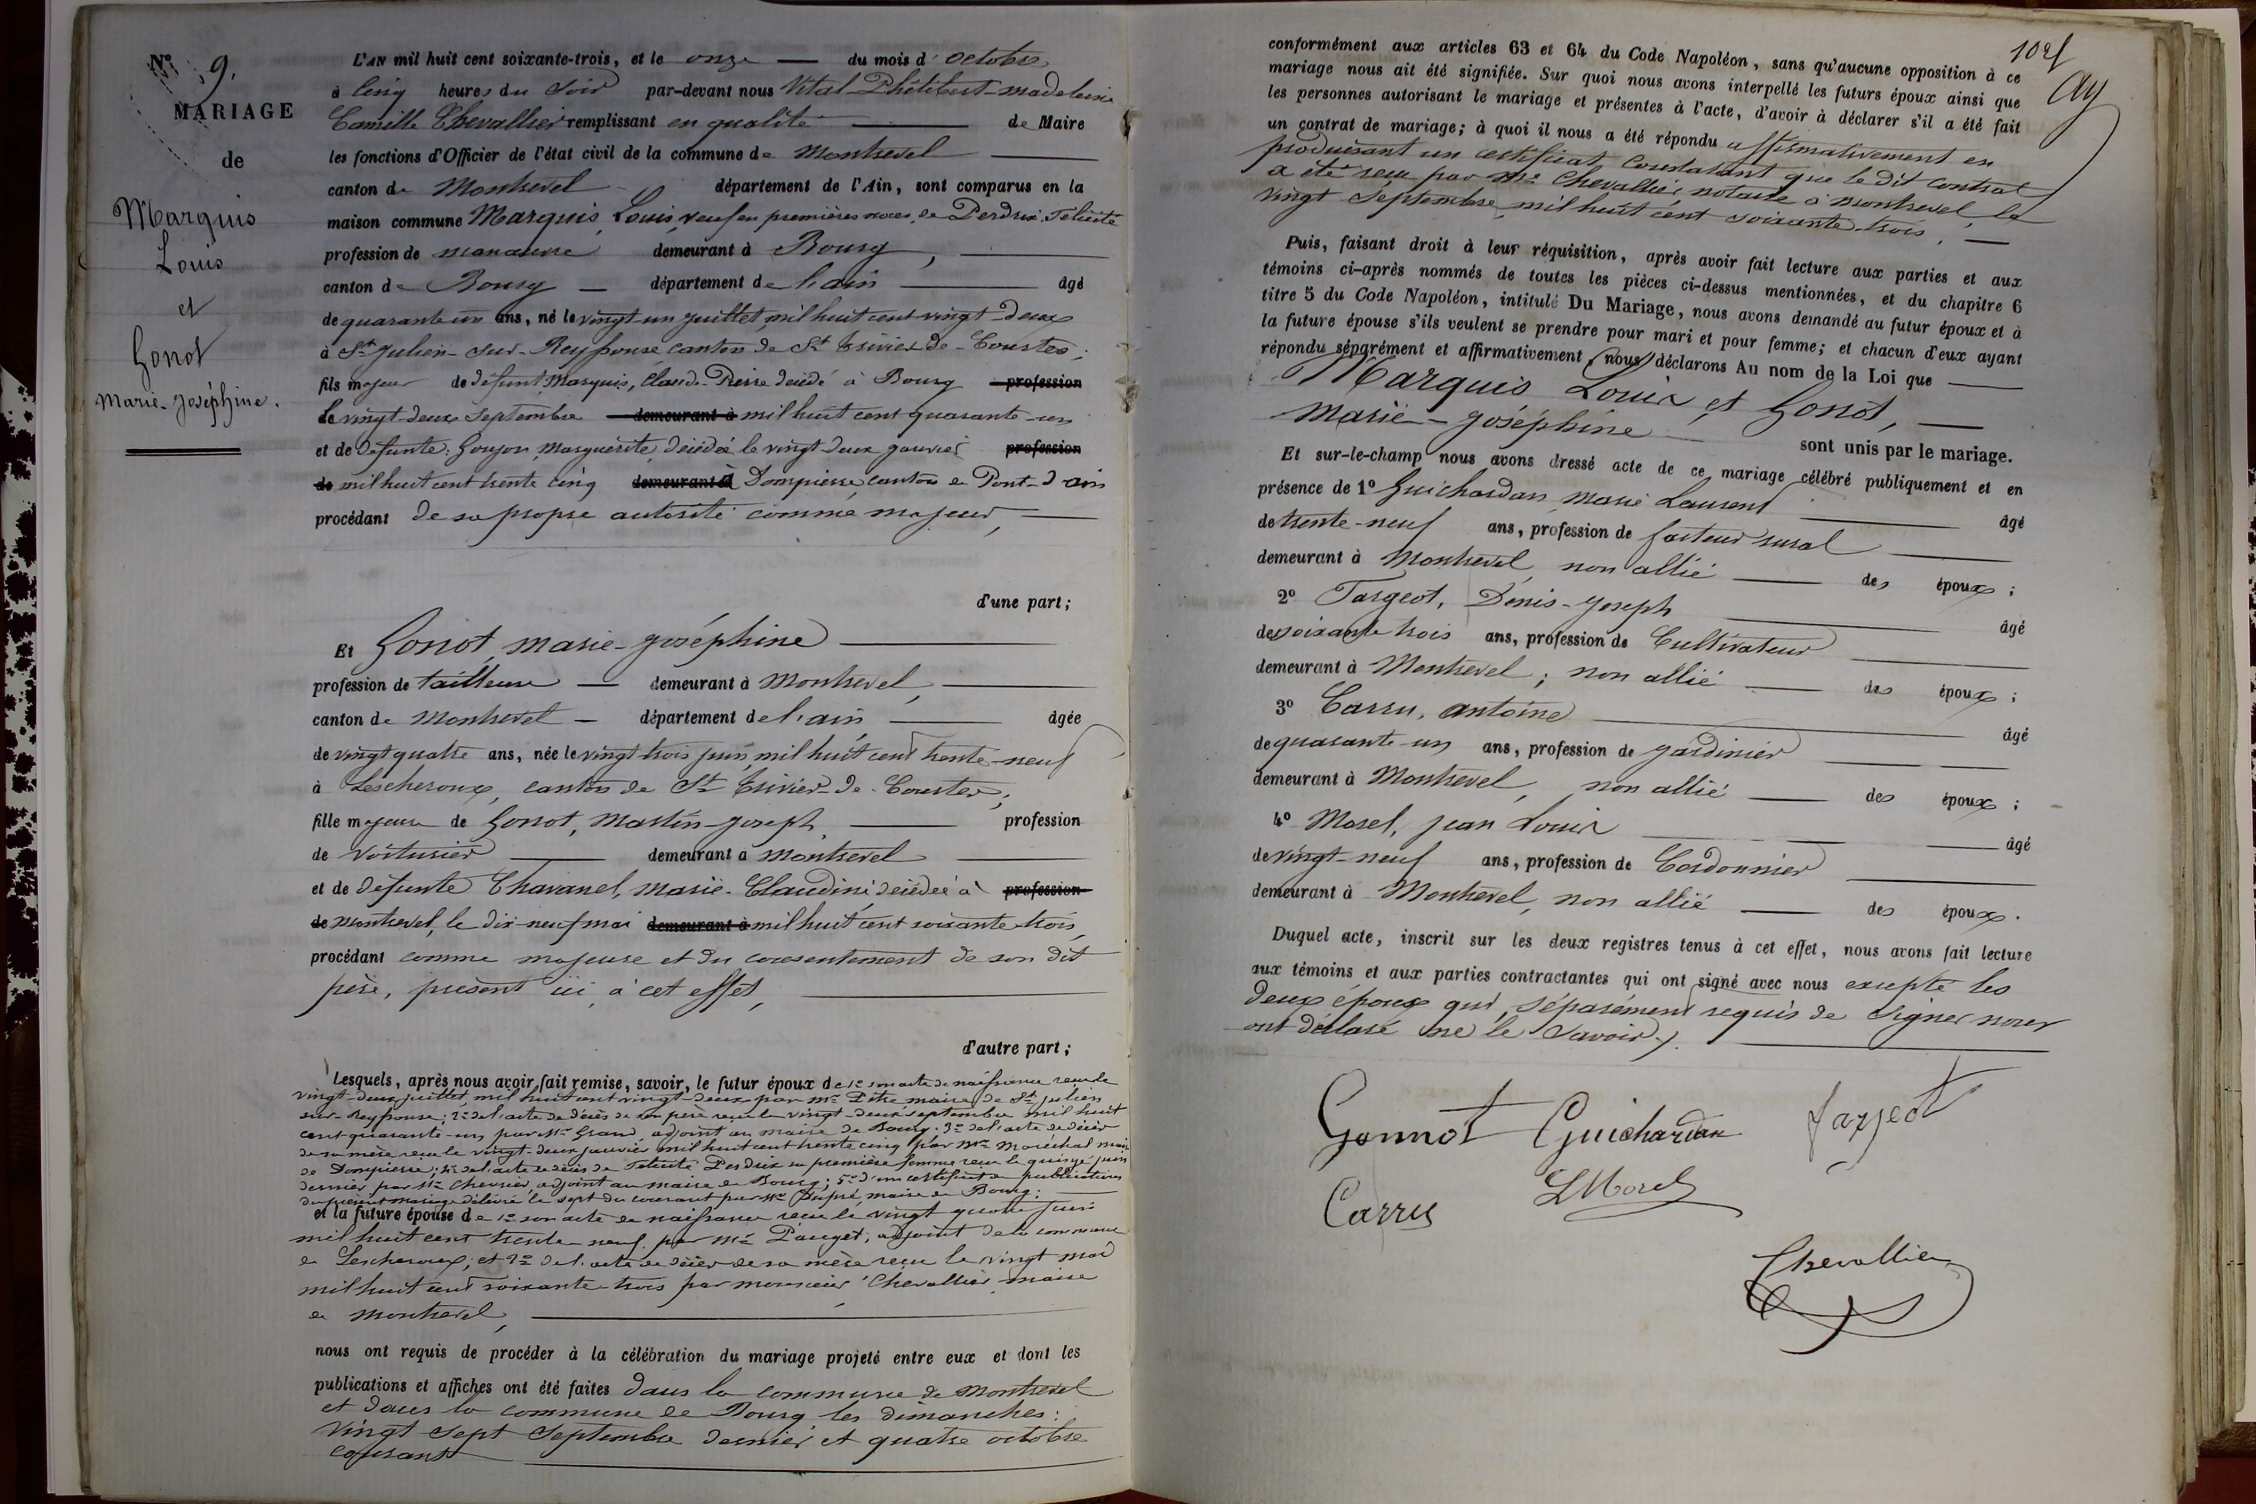 Nº 9.
MARIAGE
de
Marquis
Louis
et
Gonot
Marie-Joséphine.
L'AN mil huit cent soixante-trois, et le onze du mois d'octobre
à cinq heures du soir par-devant nous Vital Philibert-Madeleine
Camille Chevallier remplissant en qualité de Maire
les fonctions d'Officier de l'état civil de la commune de Montrevel
canton de Montrevel département de l'Ain, sont comparus en la
maison commune Marquis, Louis, veuf en premières noces de Perdrix Félicité
profession de manœuvre demeurant à Bourg,
canton de Bourg département de l'ain âgé
de quarante un ans, né le vingt-un juillet mil huit cent vingt-deux
à St Julien-sur-Reyssouze canton de St Trivier-de-Courtes.
fils majeur de défunt Marquis, Claude-Pierre décédé à Bourg profession
de vingt-deux septembre demeurant à mil huit cent quarante-un
et de défunte Goujon, Marguerite, décédée le vingt-deux janvier profession
de mil huit cent trente cinq demeurant à Dompierre, canton de Pont-d'ain
procédant de sa propre autorité comme majeur,
d'une part;
Et Gonot, Marie-Joséphine
profession de tailleuse demeurant à Montrevel,
canton de Montrevel département de l'ain âgée
de vingt quatre ans, née le vingt trois juin mil huit cent trente-neuf
à Lescheroux, canton de St Trivier-de-Courtes;
fille majeure de Gonot, Martin-Joseph, profession
de voiturier demeurant à Montrevel
et de défunte Chavanel, Marie-Claudine, décédée à profession
de Montrevel, le dix-neuf mai demeurant à mil huit cent soixante trois,
procédant comme majeure et du consentement de son dit
père, présent ici à cet effet,
d'autre part;
Lesquels, après nous avoir fait remise, savoir, le futur époux de 1º son acte de naissance reçu le
vingt-deux juillet, mil huit cent vingt-deux par Mr Pitre maire de St Julien
sur-Reyssouze; 2º de l'acte de décès de son père reçu le vingt-deux septembre mil huit
cent quarante-un par Mr Grand adjoint au maire de Bourg. 3º de l'acte de décès
de sa mère reçu le vingt-deux janvier mil huit cent trente cinq par Mr Maréchal maire
de Dompierre; 4º de l'acte de décès de Félicité Perdrix sa première femme reçu le quinze juin
dernier par Mr Chevrier, adjoint au maire de Bourg; 5º d'un certificat de publications
du présent mariage délivré le sept du courant par Mr Dupré, maire de Bourg;
et la future épouse de 1º son acte de naissance reçu le vingt quatre juin
mil huit cent trente neuf par Mr Pauget, adjoint de la commune
de Lescheroux; et 2º de l'acte de décès de sa mère reçu le vingt mai
mil huit cent soixante-trois par monsieur Chevallier, maire
de Montrevel,
nous ont requis de procéder à la célébration du mariage projeté entre eux et dont les
publications et affiches ont été faites dans la commune de Montrevel
et dans la commune de Bourg les dimanches:
vingt-sept septembre dernier et quatre octobre
courant
conformément aux articles 63 et 64 du Code Napoléon, sans qu'aucune opposition à ce
mariage nous ait été signifiée. Sur quoi nous avons interpellé les futurs époux ainsi que
les personnes autorisant le mariage et présentes à l'acte, d'avoir à déclarer s'il a été fait
un contrat de mariage; à quoi il nous a été répondu affirmativement en
produisant un certificat constatant que le dit contrat
a été reçu par Me Chevallier, notaire à Montrevel le
vingt septembre mil huit cent soixante-trois.
Puis, faisant droit à leur réquisition, après avoir fait lecture aux parties et aux
témoins ci-après nommés de toutes les pièces ci-dessus mentionnées, et du chapitre 6
titre 5 du Code Napoléon, intitulé Du Mariage, nous avons demandé au futur époux et à
la future épouse s'ils veulent se prendre pour mari et pour femme; et chacun d'eux ayant
répondu séparément et affirmativement, nous déclarons Au nom de la Loi que
Marquis Louis et Gonot,
Marie-Joséphine
sont unis par le mariage.
Et sur-le-champ nous avons dressé acte de ce mariage célébré publiquement et en
présence de 1º Guichardan, Marie Laurent âgé
de trente-neuf ans, profession de facteur rural
demeurant à Montrevel, non allié des époux;
2º Fargeot, Denis-Joseph âgé
de soixante trois ans, profession de Cultivateur
demeurant à Montrevel; non allié des époux;
3º Carru, Antoine âgé
de quarante-un ans, profession de jardinier
demeurant à Montrevel, non allié des époux;
4º Morel, Jean Louis âgé
de vingt-neuf ans, profession de Cordonnier
demeurant à Montrevel, non allié des époux.
Duquel acte, inscrit sur les deux registres tenus à cet effet, nous avons fait lecture
aux témoins et aux parties contractantes qui ont signé avec nous excepté les
deux époux qui, séparément requis de signer nous
ont déclaré ne le savoir.
Gonnot Guichardan fargeot
Carru LMorel
Chevallier